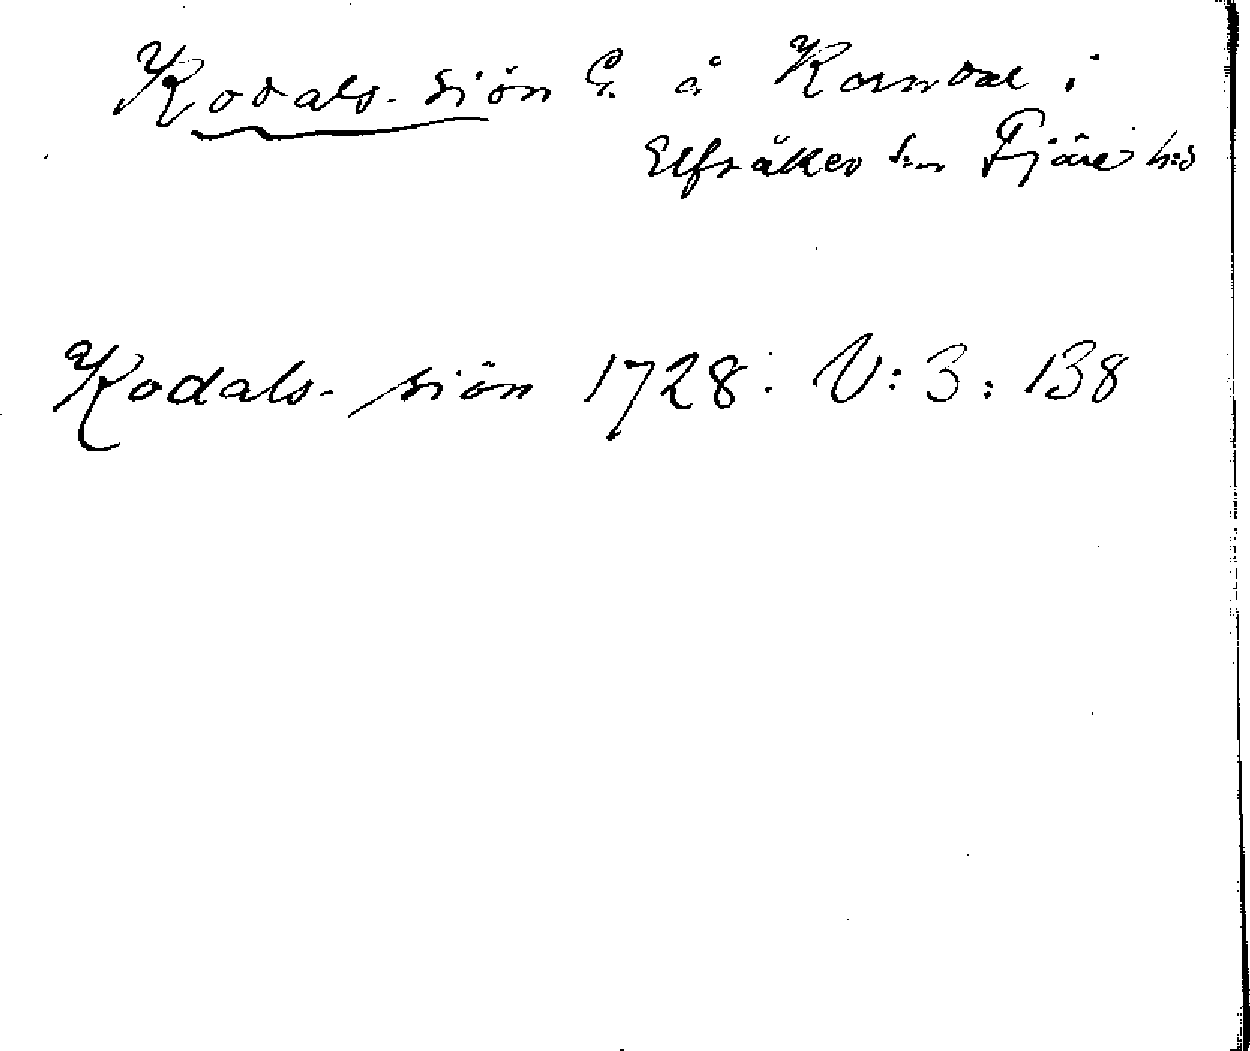 Kodals-siön G. å Korndal i
Elfsåker s:n Fjäre h:d
Kodals-siön 1728: V: 3: 138